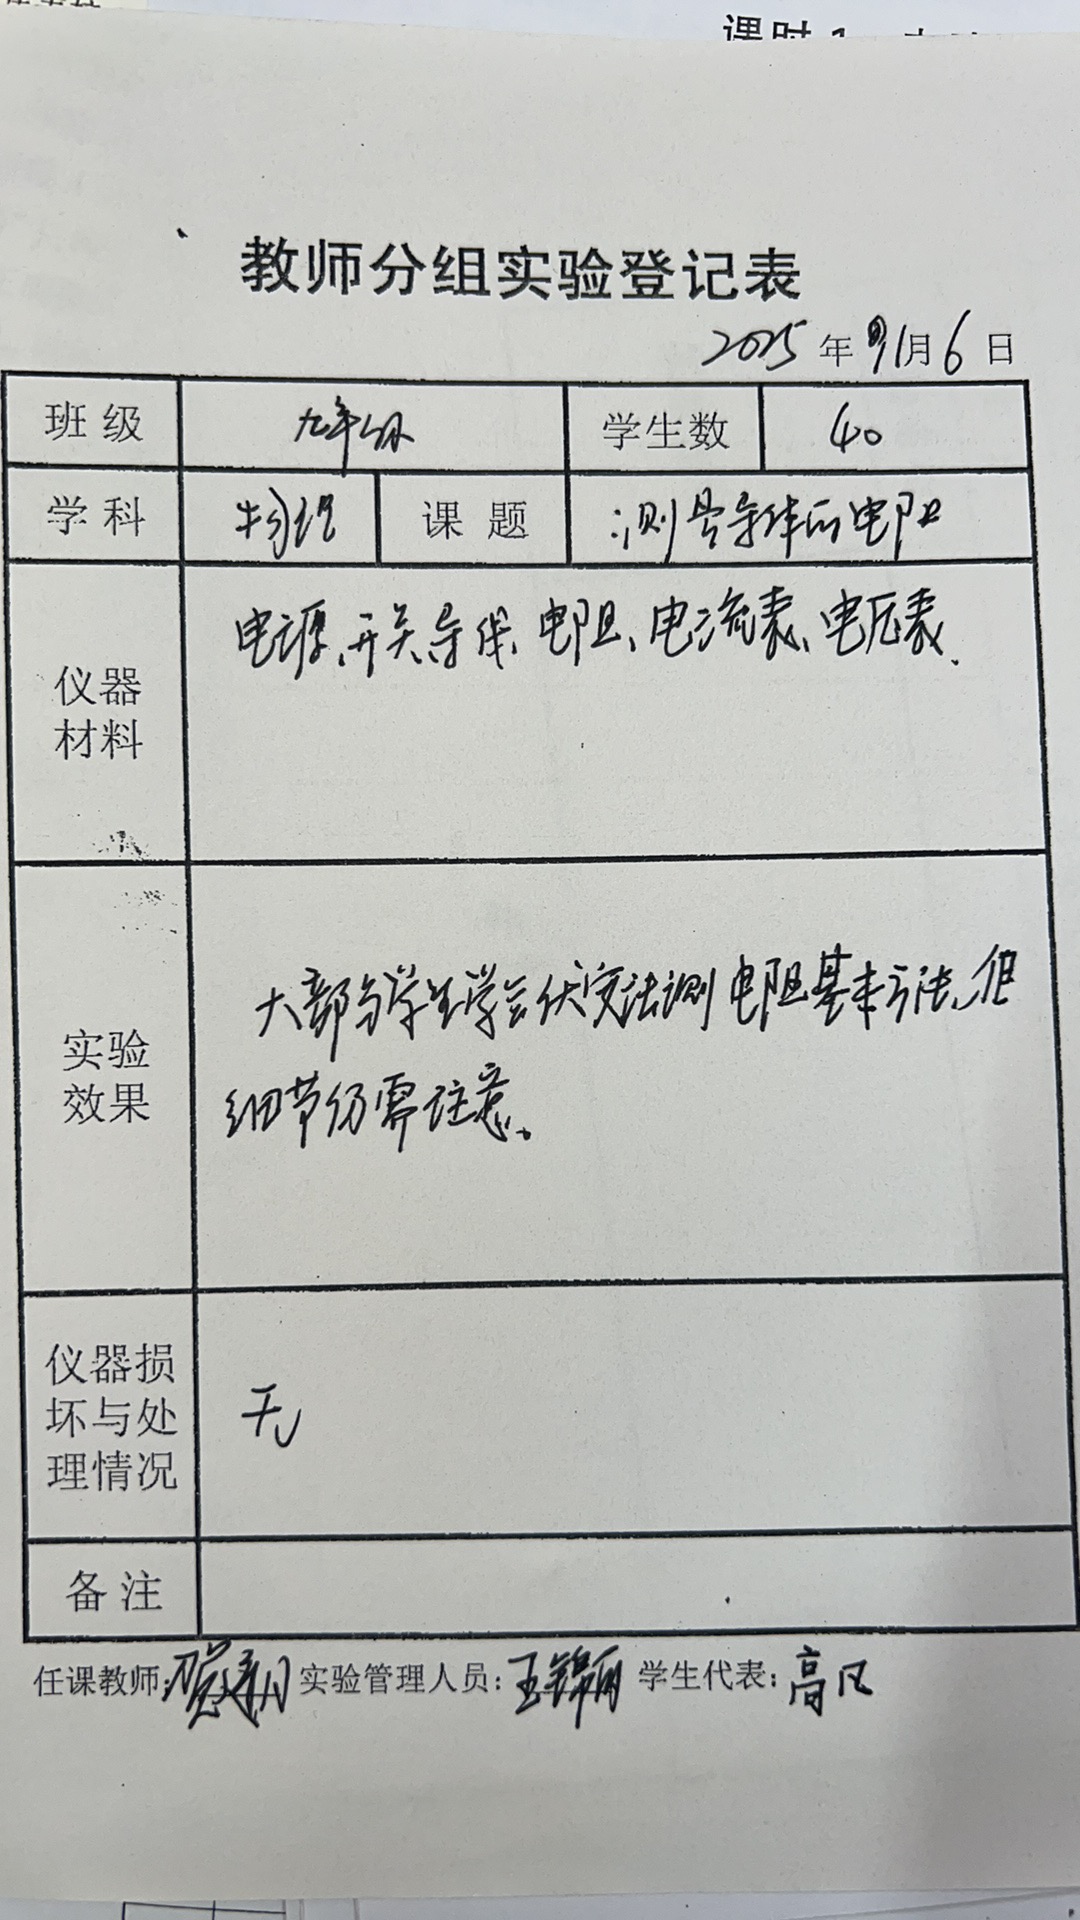 课时1
教师分组实验登记表
2025年 月6日
班级 九年级 学生数 40
学科 物理 课题 测量导体的电阻
仪器材料 电源、开关、导线、电阻、电流表、电压表.
实验效果 大部分学生学会伏安法测电阻基本方法,但
细节仍需注意。
仪器损坏与处理情况 无
备注
任课教师: 实验管理人员:王锦丽 学生代表:高凡